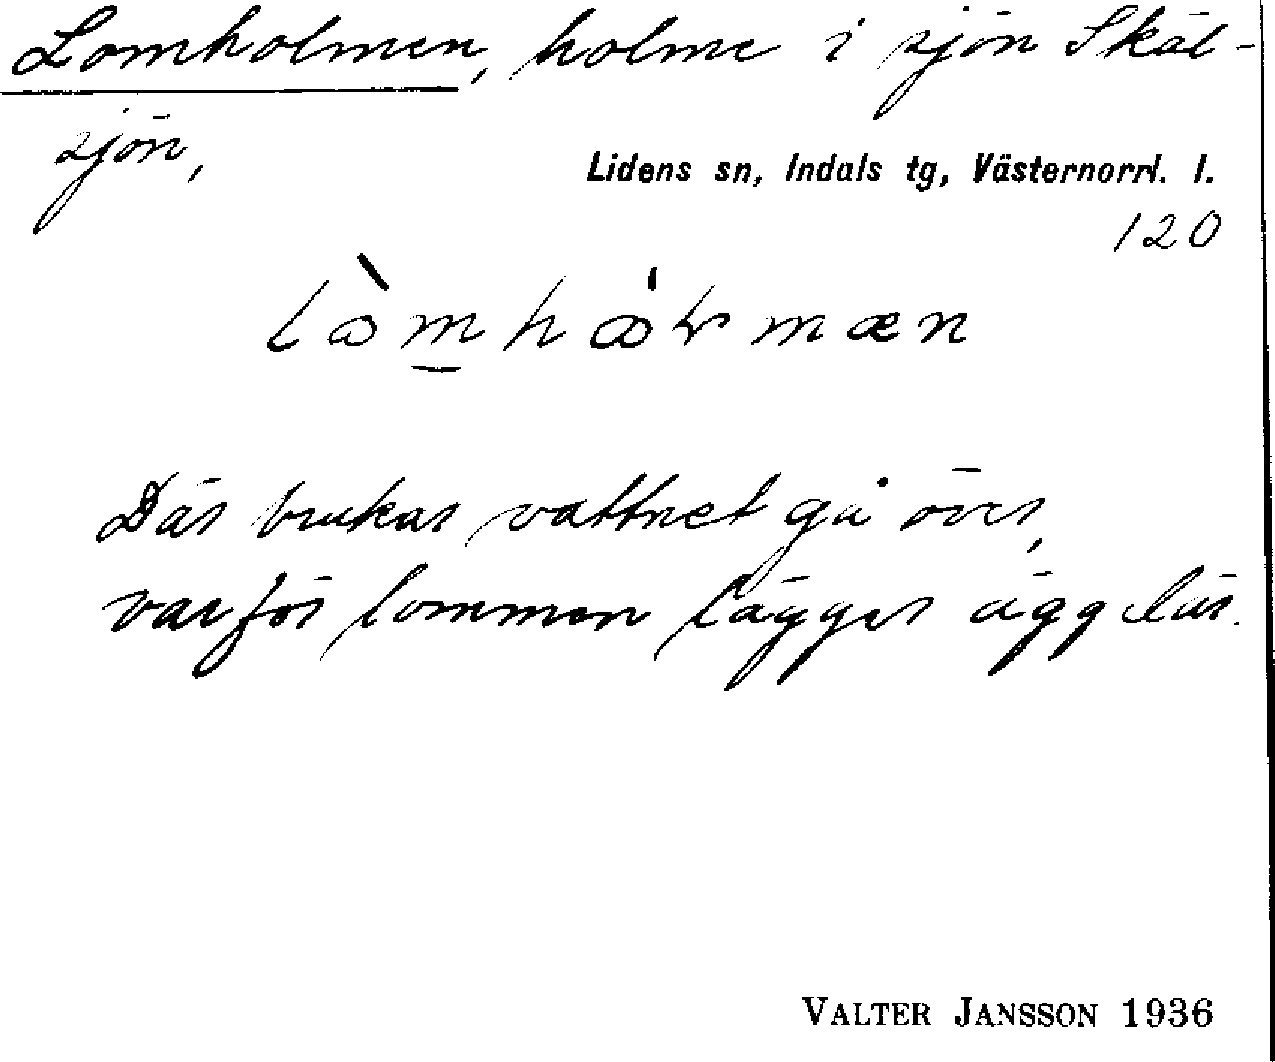 Lomholmen, holme i sjön Skäl-
sjön,
Lidens sn, Indals tg, Västernorrl. l.
120
Där brukar vattnet gå över,
varför lommen lägger ägg där.
VALTER JANSSON 1936